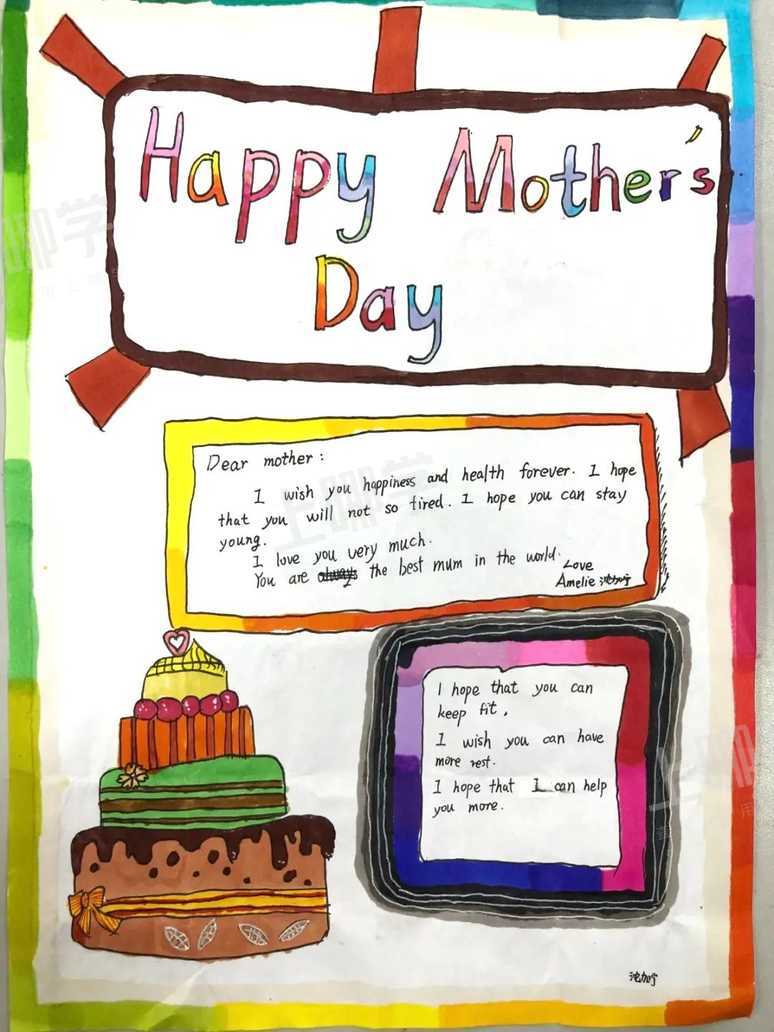 Happy Mother's
Day
Dear mother:
I wish you happiness and health forever. I hope
that you will not so tired. I hope you can stay
young.
I love you very much.
You are always the best mum in the world.
Love
Amelie
I hope that you can
keep fit,
I wish you can have
more rest.
I hope that I can help
you more.